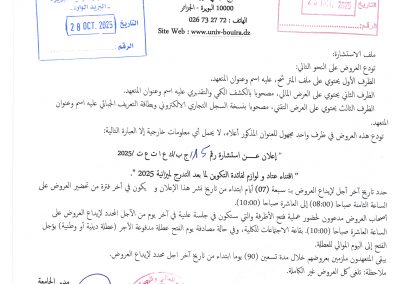 10000 البويرة - الجزائر
الهاتف : 02 72 73 026
Site Web : www.univ-bouira.dz
البريد الوارد
التاريخ 28 OCT. 2025
الرقم
التاريخ
الرقم
ملف الاستشارة:
تودع العروض على النحو التالي:
الظرف الأول يحتوي على ملف الترشح, عليه اسم وعنوان المتعهد.
الظرف الثاني يحتوي على العرض المالي, مصحوبا بالكشف الكمي والتقديري عليه اسم وعنوان المتعهد.
الظرف الثالث يحتوي على العرض التقني, مصحوبا بنسخة السجل التجاري الالكتروني وبطاقة التعريف الجبائي عليه اسم وعنوان
المتعهد.
تودع هذه العروض في ظرف واحد مجهول للعنوان المذكور أعلاه، لا يحمل أي معلومات خارجية إلا العبارة التالية:
" إعلان عن استشارة رقم /2025
" اقتناء عتاد و لوازم لفائدة التكوين لما بعد التدرج لميزانية 2025 ".
حدد تاريخ آخر أجل لإيداع العروض بـ: سبعة (07) أيام ابتداء من تاريخ نشر هذا الإعلان و يكون في آخر فترة من تحضير العروض على
الساعة الثامنة صباحا (08:00) إلى العاشرة صباحا (10:00).
أصحاب العروض مدعوون لحضور عملية فتح الأظرفة والتي ستكون في جلسة علنية في آخر يوم من الأجل المحدد لإيداع العروض على
الساعة العاشرة صباحا (10:00). بقاعة الاجتماعات للكلية، وفي حالة مصادفة يوم الفتح عطلة مدفوعة الأجر (عطلة دينية أو وطنية) يؤجل
الفتح إلى اليوم الموالي للعطلة.
يبقى المتعهدون ملزمون بعروضهم خلال مدة تسعين (90) يوما ابتداء من تاريخ آخر أجل محدد لإيداع العروض.
ملاحظة: تلغى كل العروض غير الكاملة.
مدير الجامعة